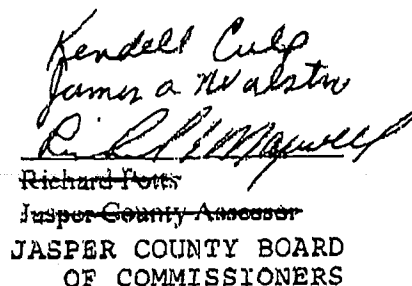 Kendell Culp
James A
Richard E Maxwell
Richard Potts
Jasper County Assessor
JASPER COUNTY BOARD
OF COMMISSIONERS